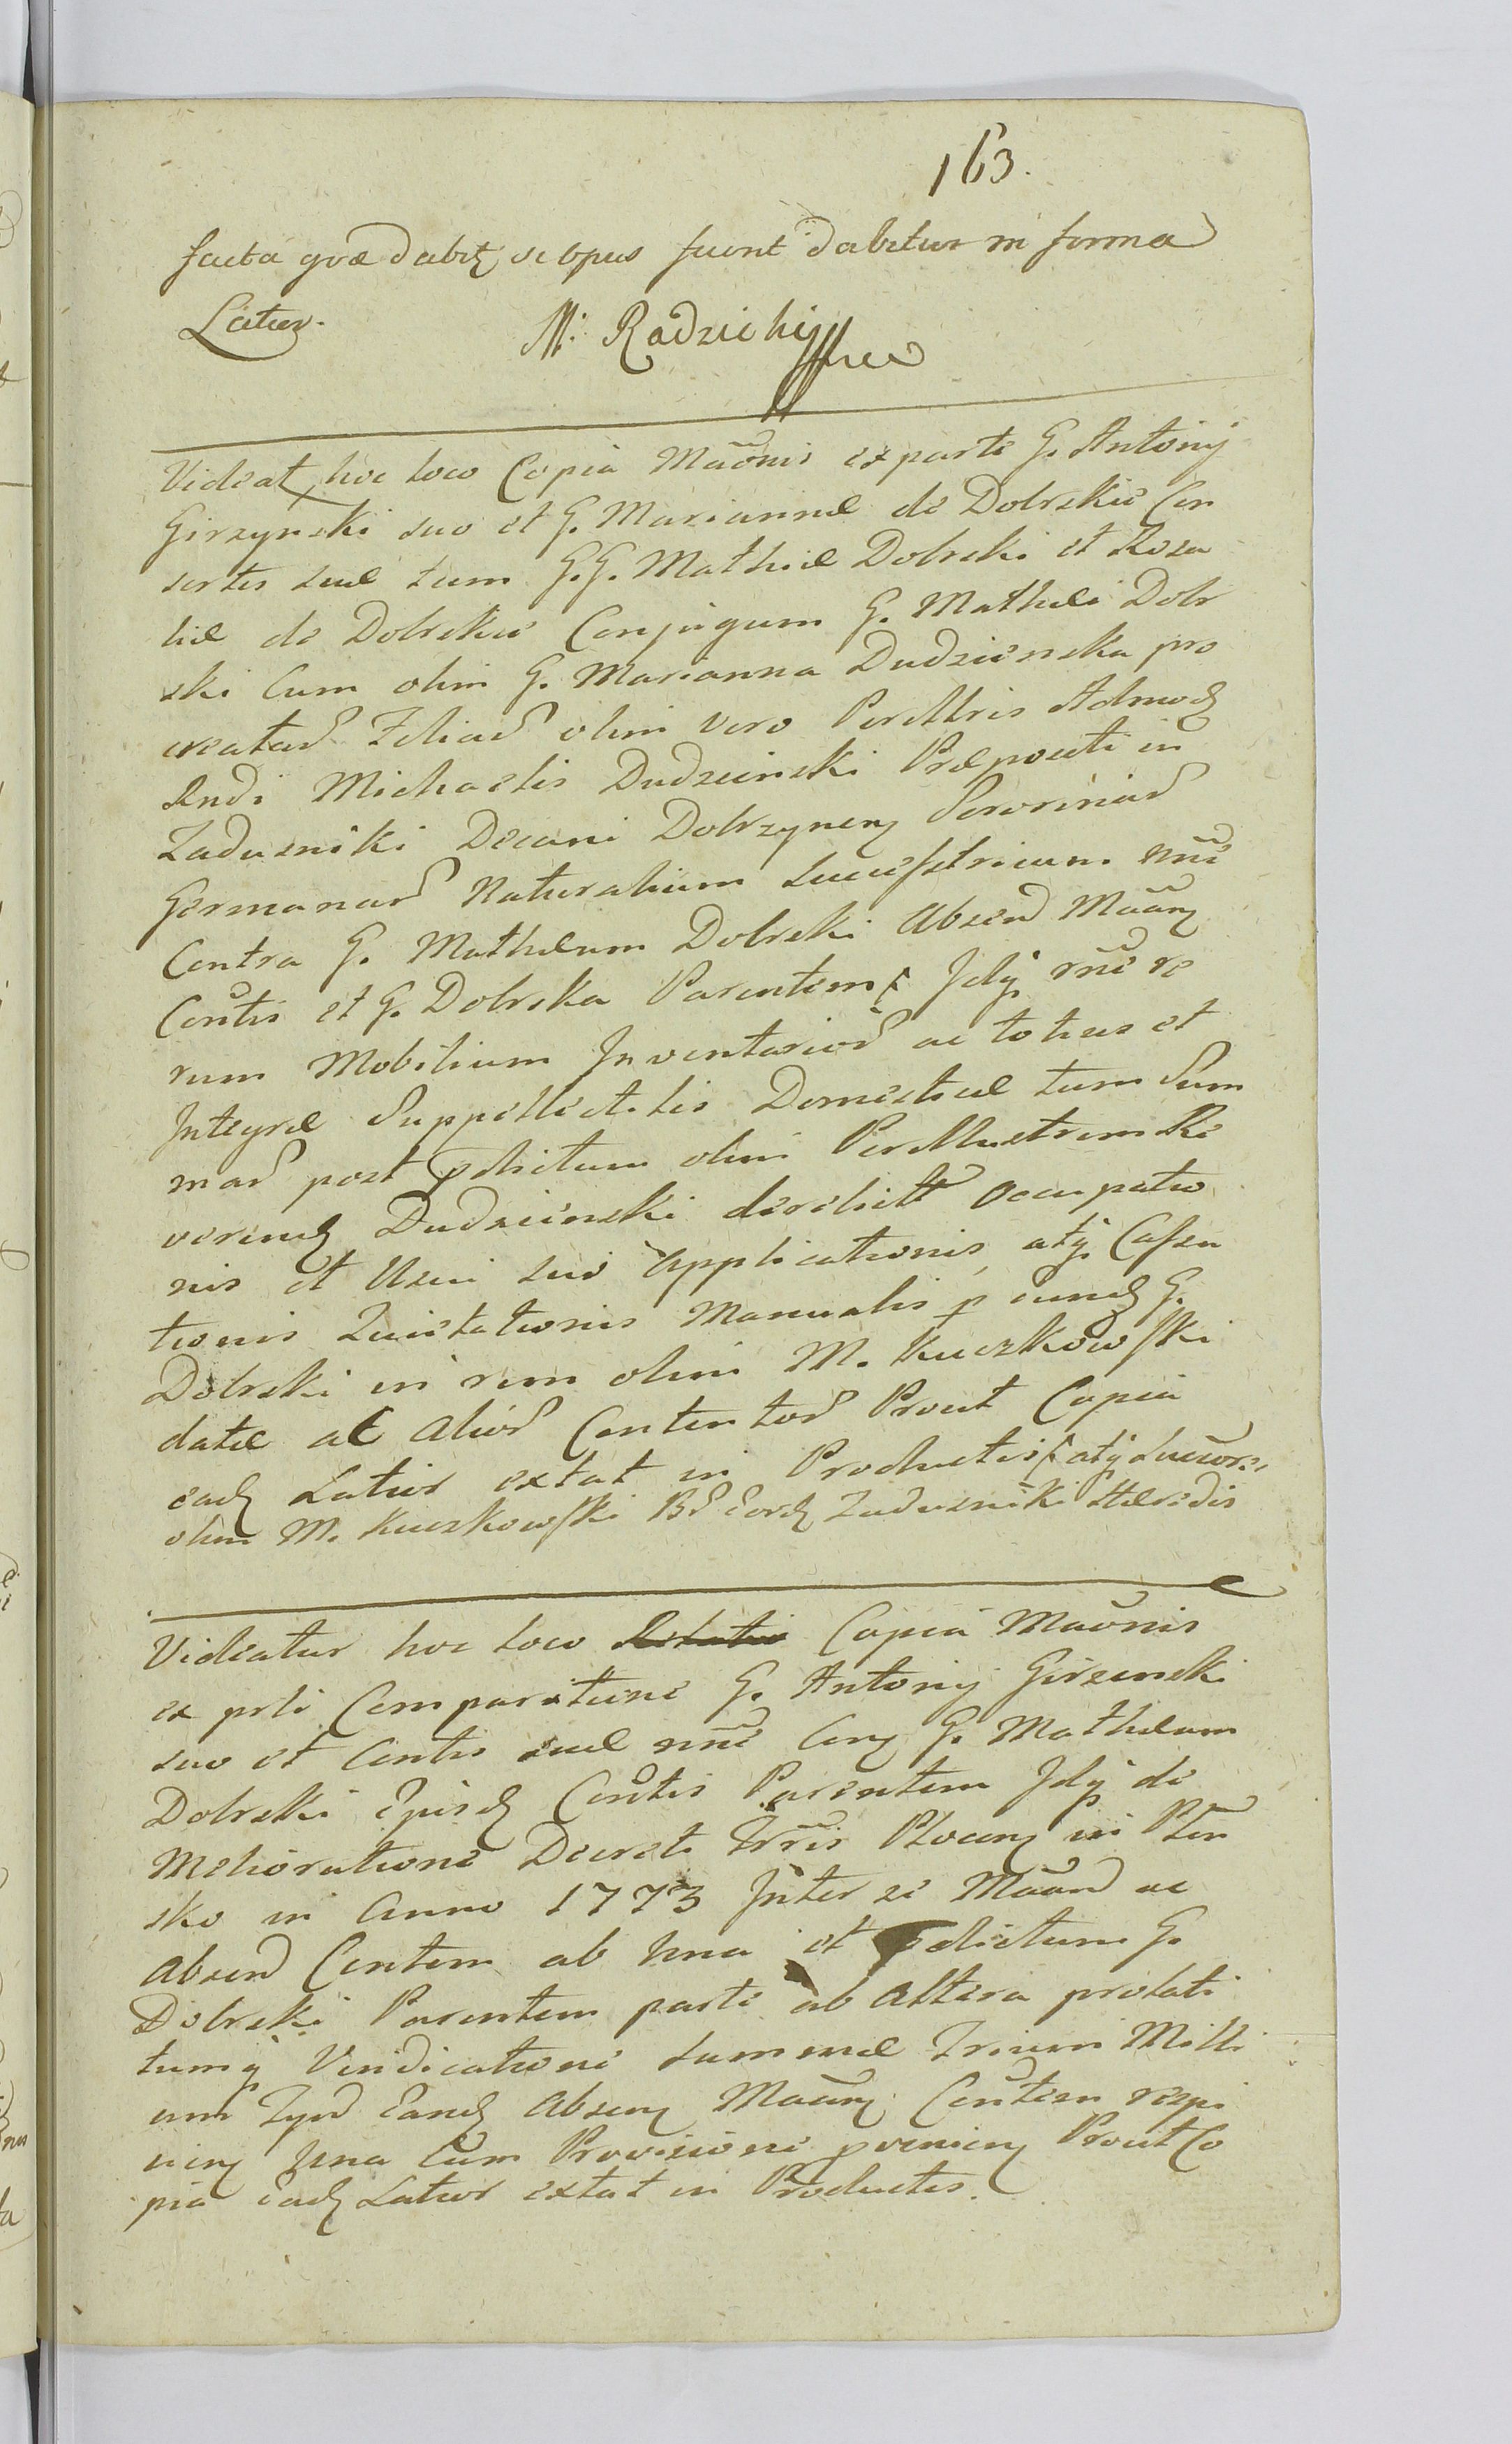 163.
facta quæ dabitq si opus fuerit dabitur in forma
Latior.
M: Radzicki
Videat hoc loco Copia Mãõnis ex parte G. Antonij
Girzynski suo et G. Mariannæ de Dobrskie Con
sortis suæ tum G.G. Mathiæ Dobrski et Rosa
liæ de Dobrskie Conjugum G. Mathæi Dobr
ski Cum olim G. Marianna Dudzienska pro
creatar Filiar olim vero Perillris Admodq
Rndi Michaelis Dudzienski Præpositi in
Zaduszniki Decani Dobrzynen Sororinar
Germanar Naturalium Successatricum nñe
Contra G. Mathæum Dobrski Absen Mãan
Contis et G. Dobrska Parentem Idq rñe re
rum Mobilium Inventarior ac totius et
Integræ Suppellectilis Domesticæ tum Sum
mar post pdictum olim Perillustrem Re
verendq Dudzienski derelict occupatio
nis et Usui suo applicationis, atq Cassa
tionis Quietationis Manualis p eundq G.
Dobrski in rem olim M. Kuczkowski
datæ ac alior Contentor Prout Copia
eadq Latior extat in Productis atq Succor:
olim M. Kuczkowski Br eordq Zaduszniki Hæredis
Videatur hoc loco Relatio Copia Mãonis
ex prti Comparitione G. Antonij Girzenski
suo et Contis suæ nñe Con G. Mathæum
Dobrski Ejusdq Contis Parentem Idq de
Melioratione Decreti Trris Plocen in Plon
sko in Anno 1773 Inter se Mãan ac
Absen Contem ab una et pdictum G.
Dobrski Parentem parte ab altera prolati
tumq Vindicatione summæ Trium Milli
um Tynf Eandq Absen Mãan Contem respi
cien una Cum Provisione provenien Prout Co
pia eadq Latior extat in Productis.